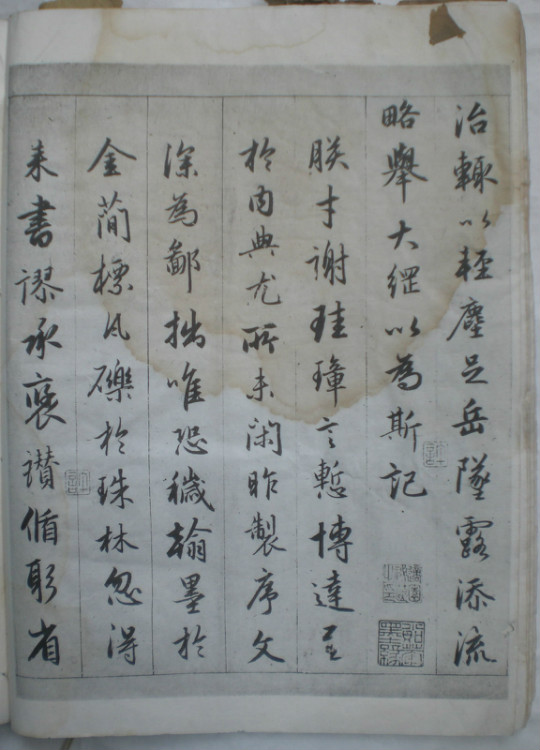 治輒以輕塵足岳墜露添流
略舉大綱以為斯記
朕才謝珪璋言慙博達至
於内典尤所未閑昨製序文
深為鄙拙唯恐穢翰墨於
金簡標瓦礫於珠林忽得
来書謬承褒讃循躬省